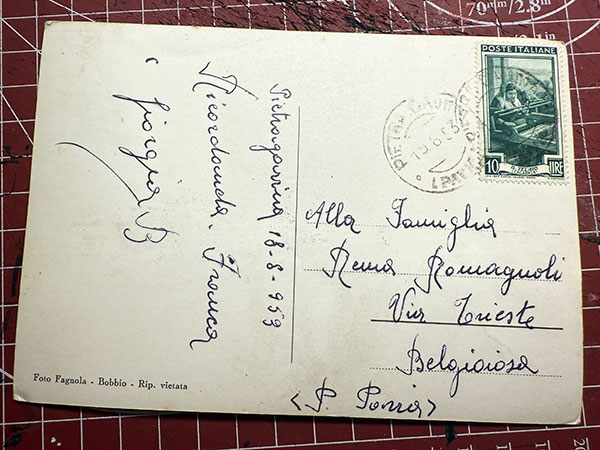 70mm/2.8in
POSTE ITALIANE
10 LIRE
19.8.53
Pietragavina 18-8-953
Ricordando. Franca
e Giorgia B
Alla Famiglia
Rema Romagnoli
Via Trieste
Belgioiosa
(P. Pavia)
Foto Fagnola - Bobbio - Rip. vietata